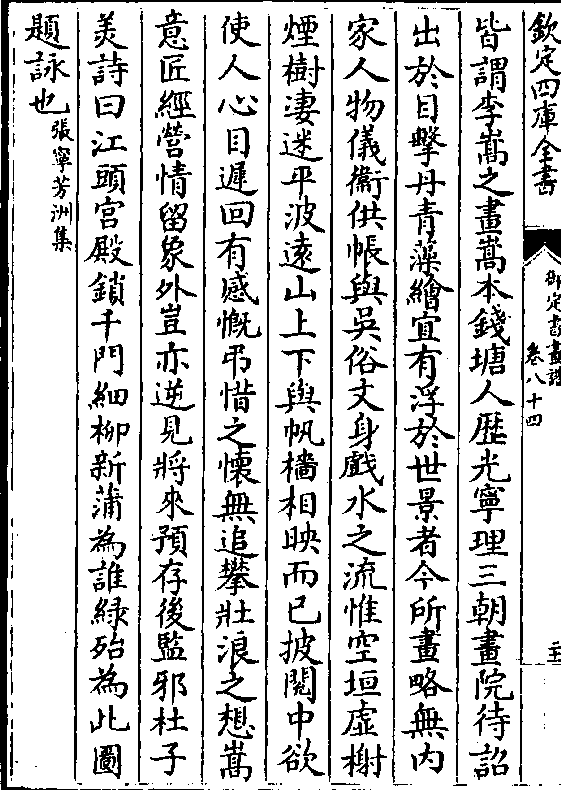 欽定四庫全書
御定書畫譜
卷八十四
二十
皆謂李嵩之畫嵩本錢塘人歴光寧理三朝畫院待詔
出於目擊丹青藻繪宜有浮於世景者今所畫略無内
家人物儀衛供帳與吳俗文身戲水之流惟空垣虛榭
煙樹凄迷平波逺山上下與帆檣相映而已披閲中欲
使人心目遲回有感慨弔惜之懷無追攀壯浪之想嵩
意匠經營情留象外豈亦逆見將來預存後監邪杜子
美詩曰江頭宫殿鎖千門細栁新蒲為誰緑殆為此圖
題詠也張寧芳洲集